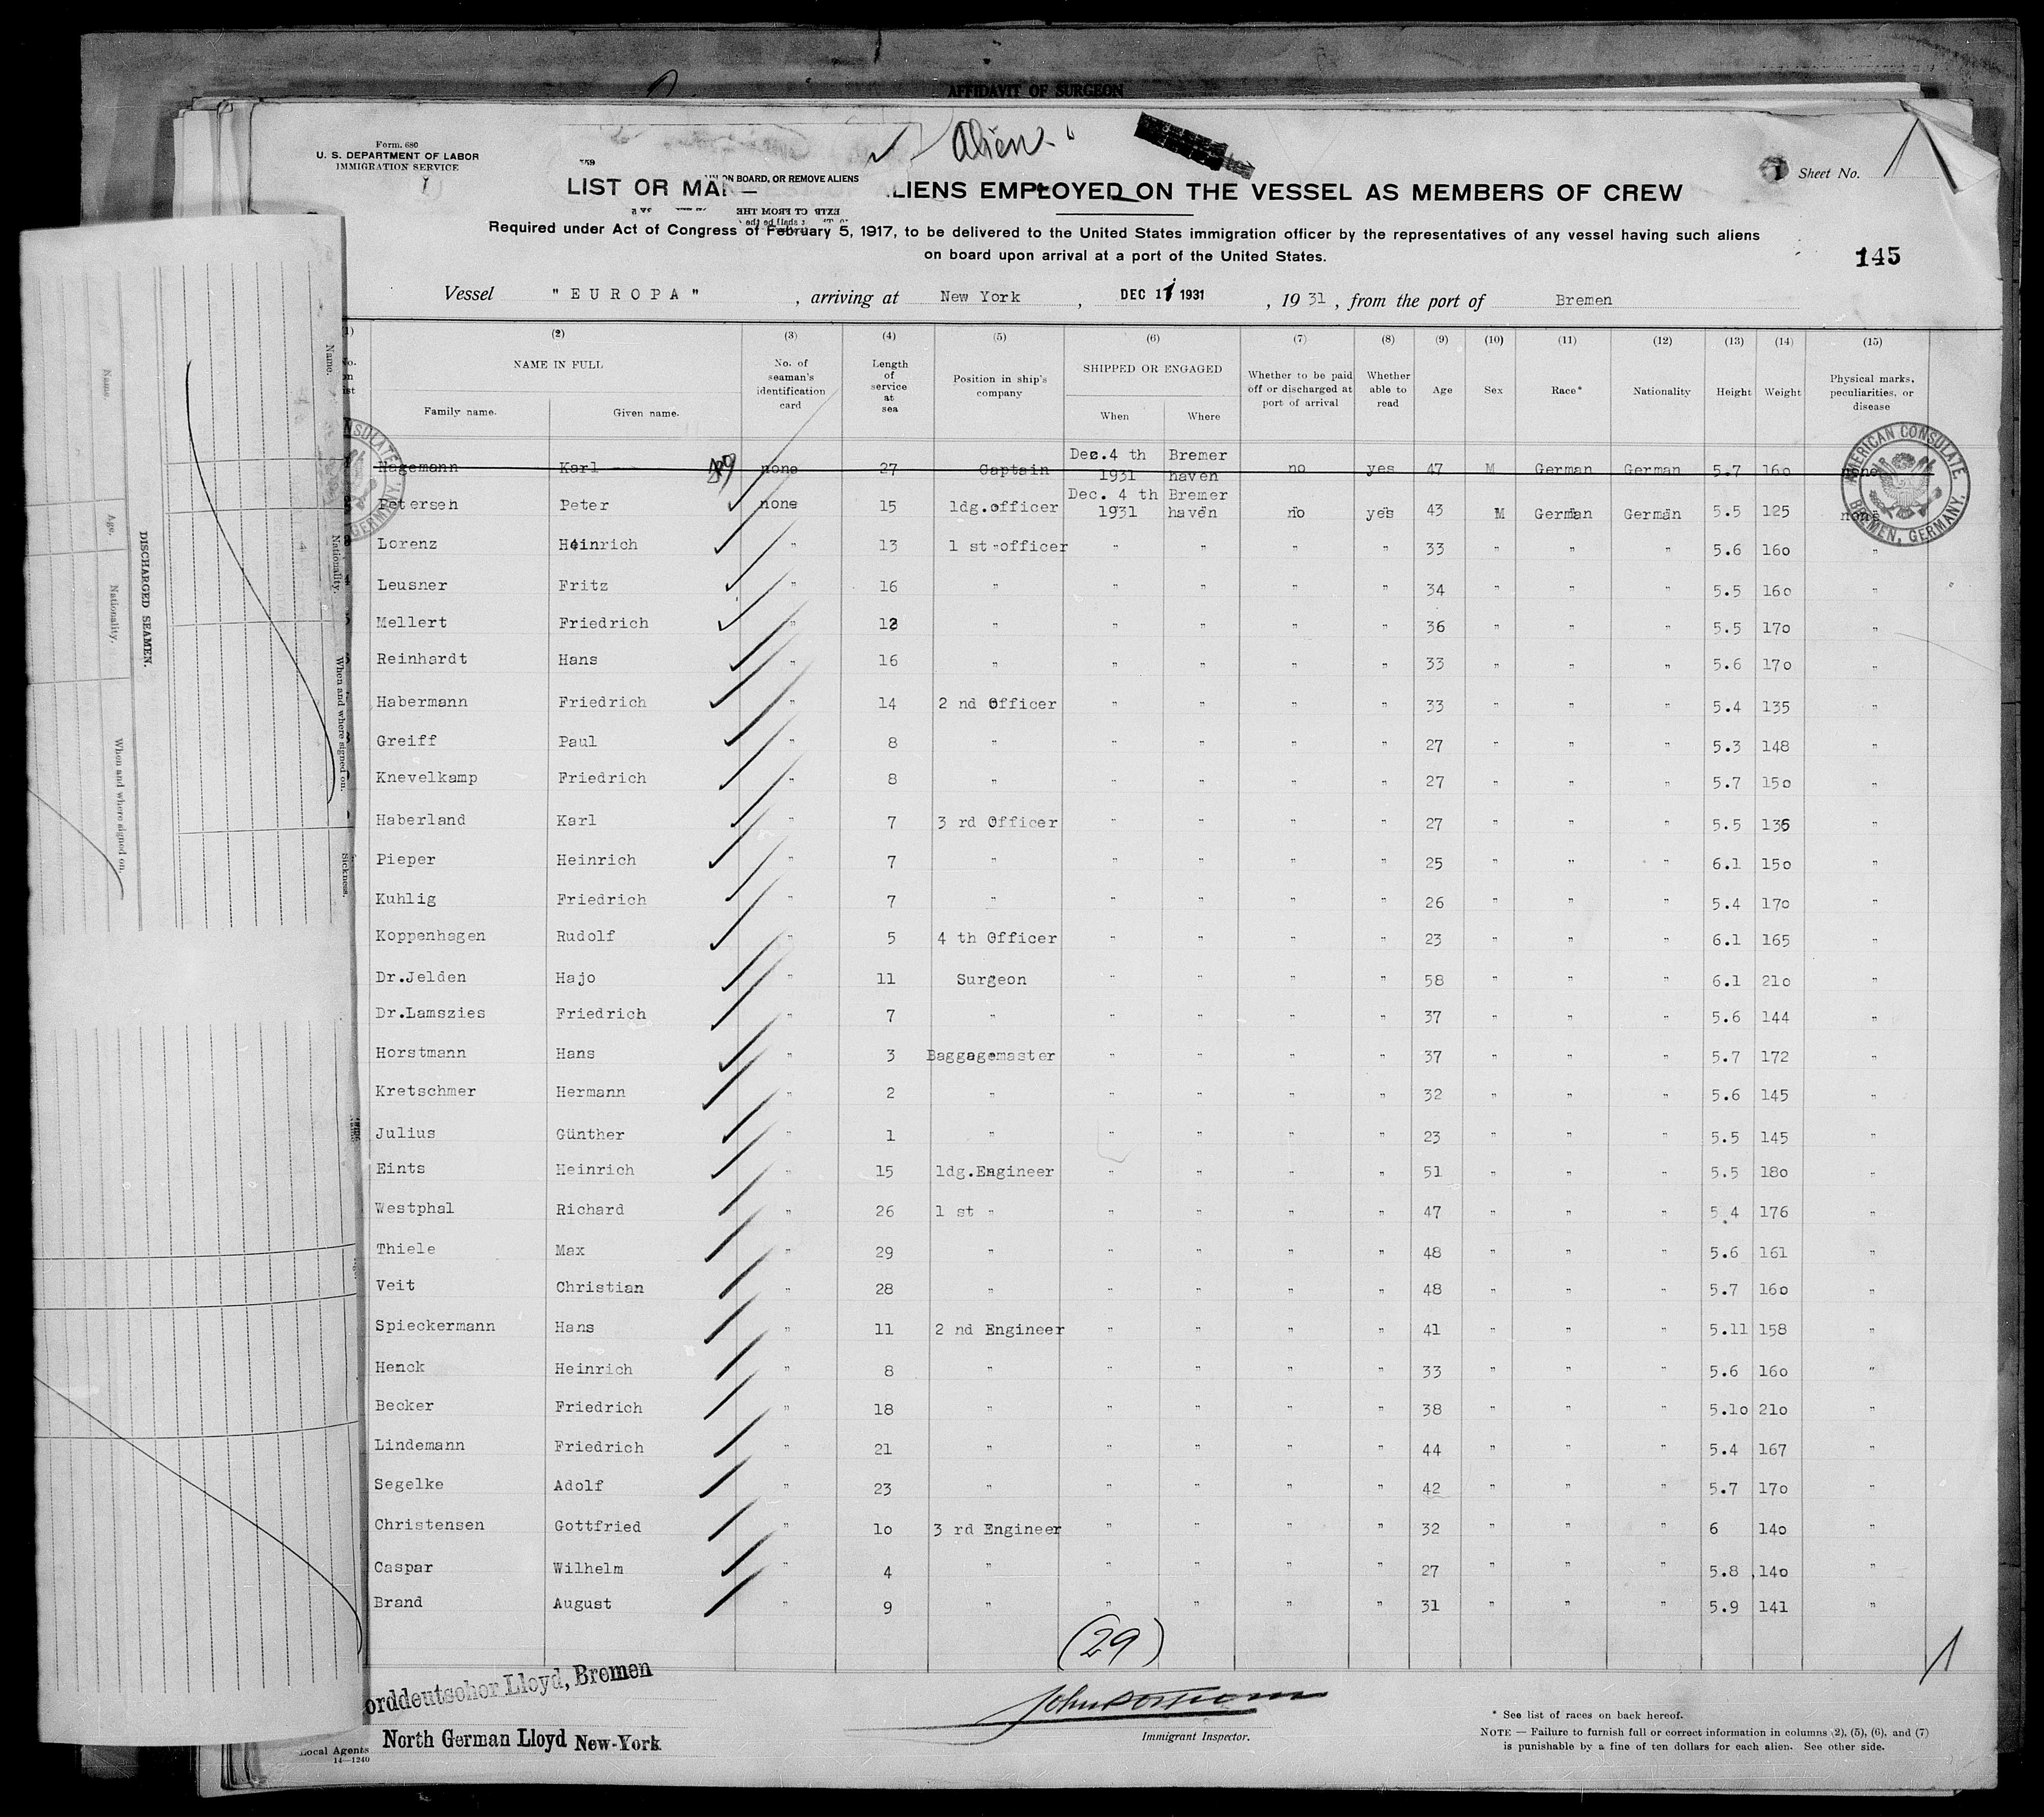 AFFIDAVIT OF SURGEON
Form. 680
U. S. DEPARTMENT OF LABOR
IMMIGRATION SERVICE
Alien
ON BOARD, OR REMOVE ALIENS
Sheet No. 1
LIST OR MAN ALIENS EMPLOYED ON THE VESSEL AS MEMBERS OF CREW
Required under Act of Congress of February 5, 1917, to be delivered to the United States immigration officer by the representatives of any vessel having such aliens
on board upon arrival at a port of the United States.
145
Vessel "EUROPA", arriving at New York, DEC 11 1931, 1931, from the port of Bremen
(1) (2) (3) (4) (5) (6) (7) (8) (9) (10) (11) (12) (13) (14) (15)
NAME IN FULL
Family name. Given name.
No. of seaman's identification card
Length of service at sea
Position in ship's company
SHIPPED OR ENGAGED
When Where
Whether to be paid off or discharged at port of arrival
Whether able to read
Age
Sex
Race*
Nationality
Height
Weight
Physical marks, peculiarities, or disease
Hagemann Karl none 27 Captain Dec.4 th 1931 Bremer haven no yes 47 M German German 5.7 160 none
Petersen Peter none 15 ldg.officer Dec. 4 th 1931 Bremer haven no yes 43 M German German 5.5 125 none
Lorenz Heinrich " 13 1 st officer " " " " 33 " " " 5.6 160 "
Leusner Fritz " 16 " " " " " 34 " " " 5.5 160 "
Mellert Friedrich " 12 " " " " " 36 " " " 5.5 170 "
Reinhardt Hans " 16 " " " " " 33 " " " 5.6 170 "
Habermann Friedrich " 14 2 nd Officer " " " " 33 " " " 5.4 135 "
Greiff Paul " 8 " " " " " 27 " " " 5.3 148 "
Knevelkamp Friedrich " 8 " " " " " 27 " " " 5.7 150 "
Haberland Karl " 7 3 rd Officer " " " " 27 " " " 5.5 136 "
Pieper Heinrich " 7 " " " " " 25 " " " 6.1 150 "
Kuhlig Friedrich " 7 " " " " " 26 " " " 5.4 170 "
Koppenhagen Rudolf " 5 4 th Officer " " " " 23 " " " 6.1 165 "
Dr.Jelden Hajo " 11 Surgeon " " " " 58 " " " 6.1 210 "
Dr.Lamszies Friedrich " 7 " " " " " 37 " " " 5.6 144 "
Horstmann Hans " 3 Baggagemaster " " " " 37 " " " 5.7 172 "
Kretschmer Hermann " 2 " " " " " 32 " " " 5.6 145 "
Julius Günther " 1 " " " " " 23 " " " 5.5 145 "
Eints Heinrich " 15 ldg.Engineer " " " " 51 " " " 5.5 180 "
Westphal Richard " 26 1 st " " " " " 47 " " " 5.4 176 "
Thiele Max " 29 " " " " " 48 " " " 5.6 161 "
Veit Christian " 28 " " " " " 48 " " " 5.7 160 "
Spieckermann Hans " 11 2 nd Engineer " " " " 41 " " " 5.11 158 "
Henck Heinrich " 8 " " " " " 33 " " " 5.6 160 "
Becker Friedrich " 18 " " " " " 38 " " " 5.10 210 "
Lindemann Friedrich " 21 " " " " " 44 " " " 5.4 167 "
Segelke Adolf " 23 " " " " " 42 " " " 5.7 170 "
Christensen Gottfried " 10 3 rd Engineer " " " " 32 " " " 6 140 "
Caspar Wilhelm " 4 " " " " " 27 " " " 5.8 140 "
Brand August " 9 " " " " " 31 " " " 5.9 141 "
(29)
orddeutscher Lloyd, Bremen
North German Lloyd New-York
Local Agents
14—1240
Immigrant Inspector.
* See list of races on back hereof.
NOTE — Failure to furnish full or correct information in columns (2), (5), (6), and (7)
is punishable by a fine of ten dollars for each alien. See other side.
AMERICAN CONSULATE
BREMEN, GERMANY.
DISCHARGED SEAMEN.
Name.
Age.
Nationality.
When and where signed on.
Name.
Nationality.
When and where signed on.
Sickness.